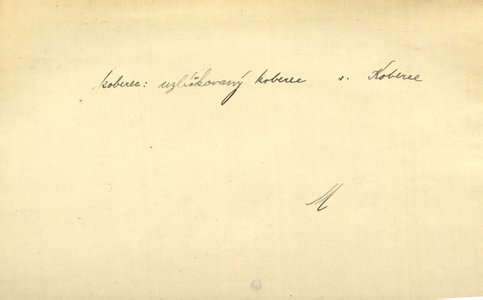 koberec: uzlíčkovaný koberec v. Koberce
M